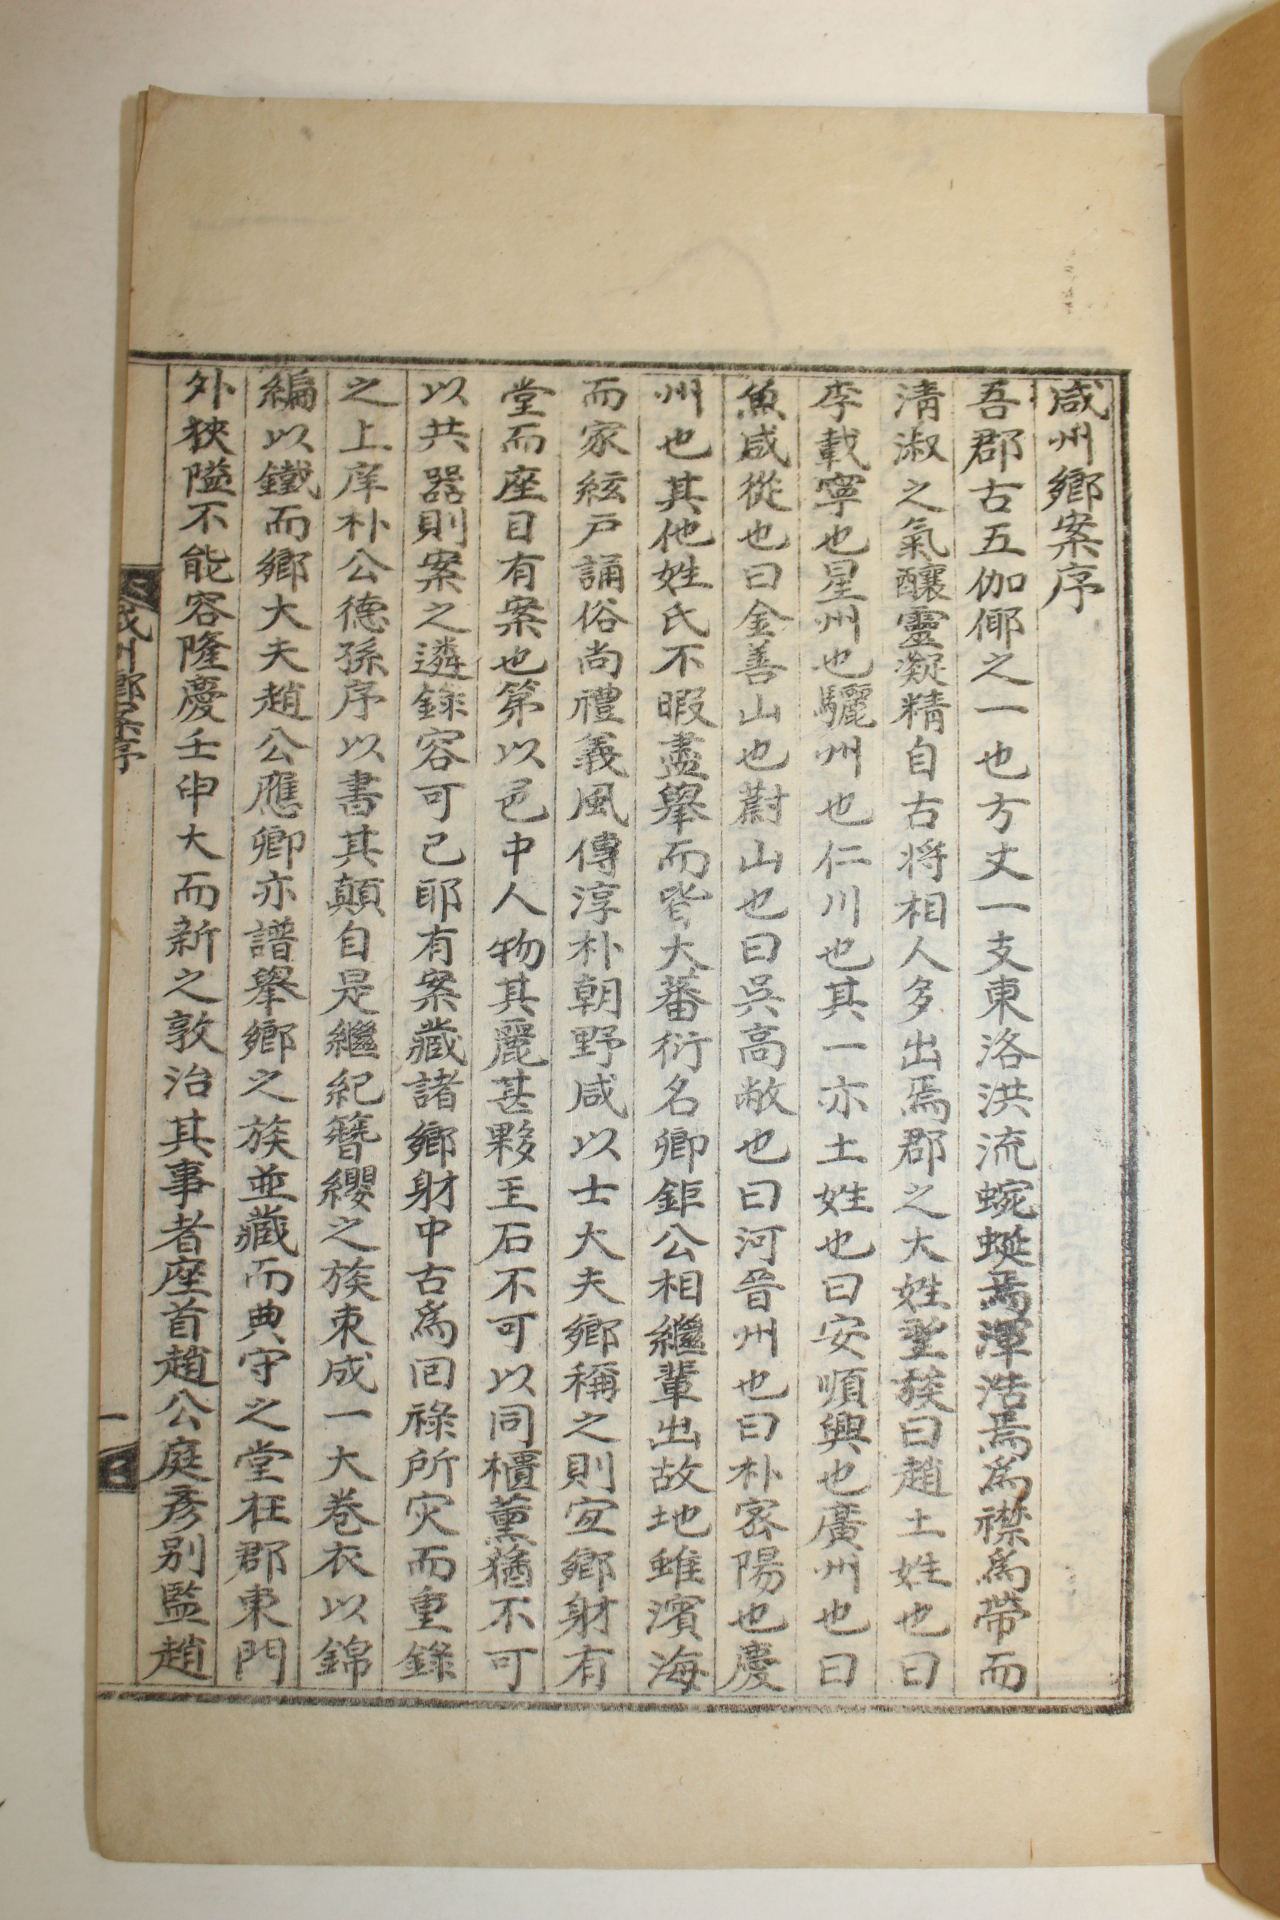 咸州鄉案序
吾郡古五伽倻之一也方丈一支東洛洪流蜿蜒焉渾浩焉爲襟爲帶而
清淑之氣釀靈凝精自古将相人多出焉郡之大姓望族曰趙土姓也曰
李載寧也星州也驪州也仁川也其一亦土姓也曰安順興也廣州也曰
魚咸從也曰金善山也蔚山也曰吳高敞也曰河晉州也曰朴密陽也慶
州也其他姓氏不暇盡擧而皆大蕃衍名卿鉅公相繼輩出故地雖濱海
而家絃戶誦俗尚禮義風傳淳朴朝野咸以士大夫鄉稱之則宜鄉射有
堂而座目有案也第以邑中人物其麗甚夥玉石不可以同櫃薰蕕不可
以共器則案之遴錄容可已耶有案藏諸鄉射中古爲回祿所灾而重錄
之上庠朴公德孫序以書其顛自是繼紀簪纓之族束成一大巻衣以錦
編以鐵而鄉大夫趙公應卿亦譜擧鄉之族並藏而典守之堂在郡東門
外狹隘不能容隆慶壬申大而新之敦治其事者座首趙公庭彥别監趙
咸州鄉案序
一